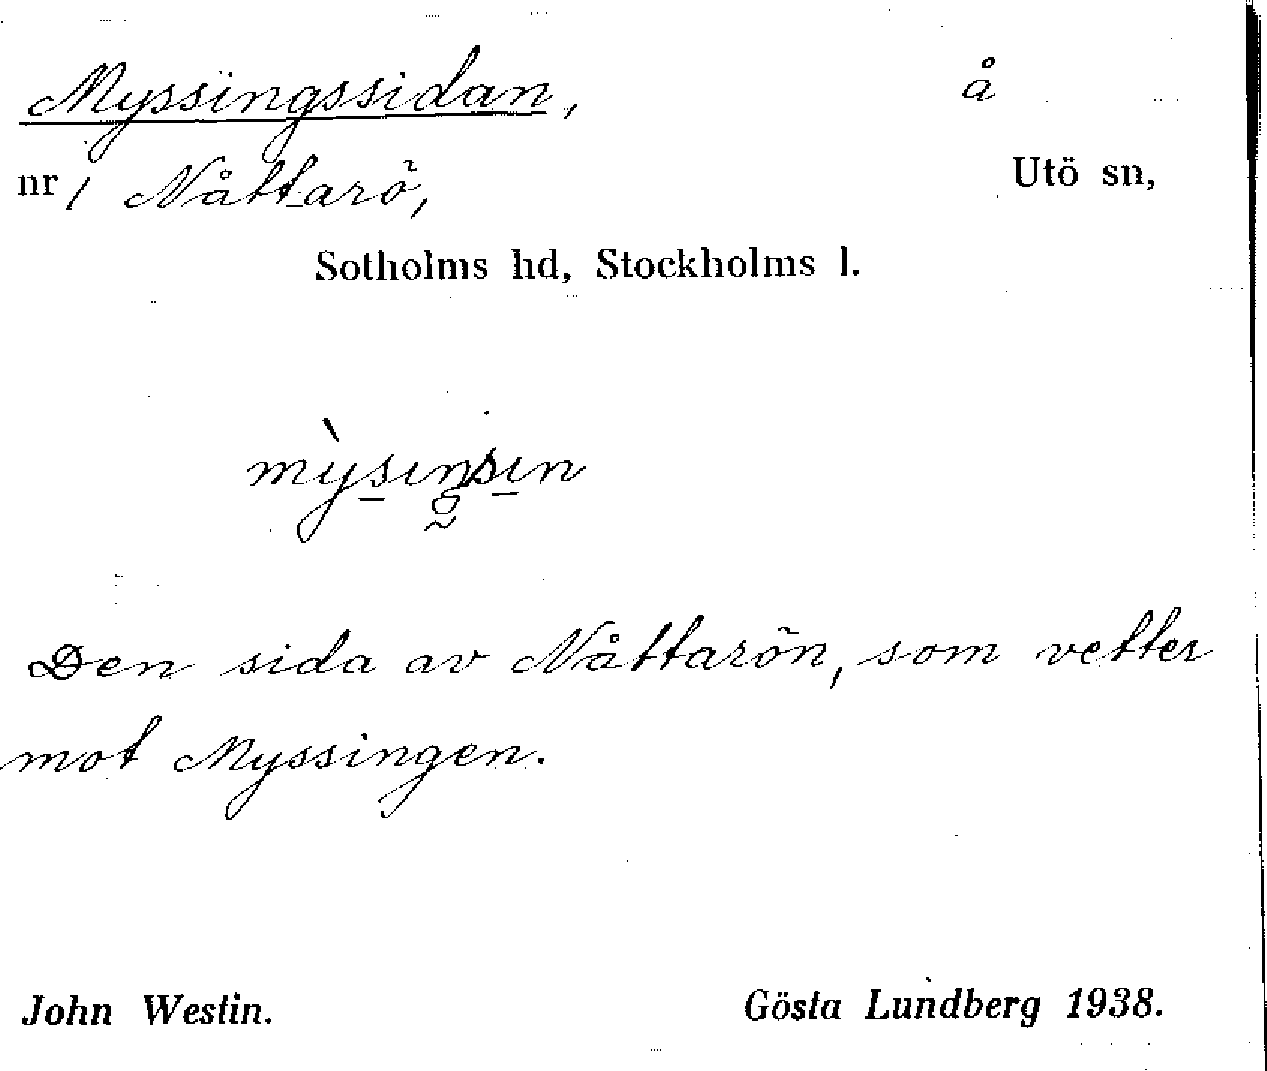 Myssingssidan, å
nr 1 Nåttarö, Utö sn,
Sotholms hd, Stockholms l.
Den sida av Nåttarön, som vetter
mot Myssingen.
John Westin. Gösta Lundberg 1938.